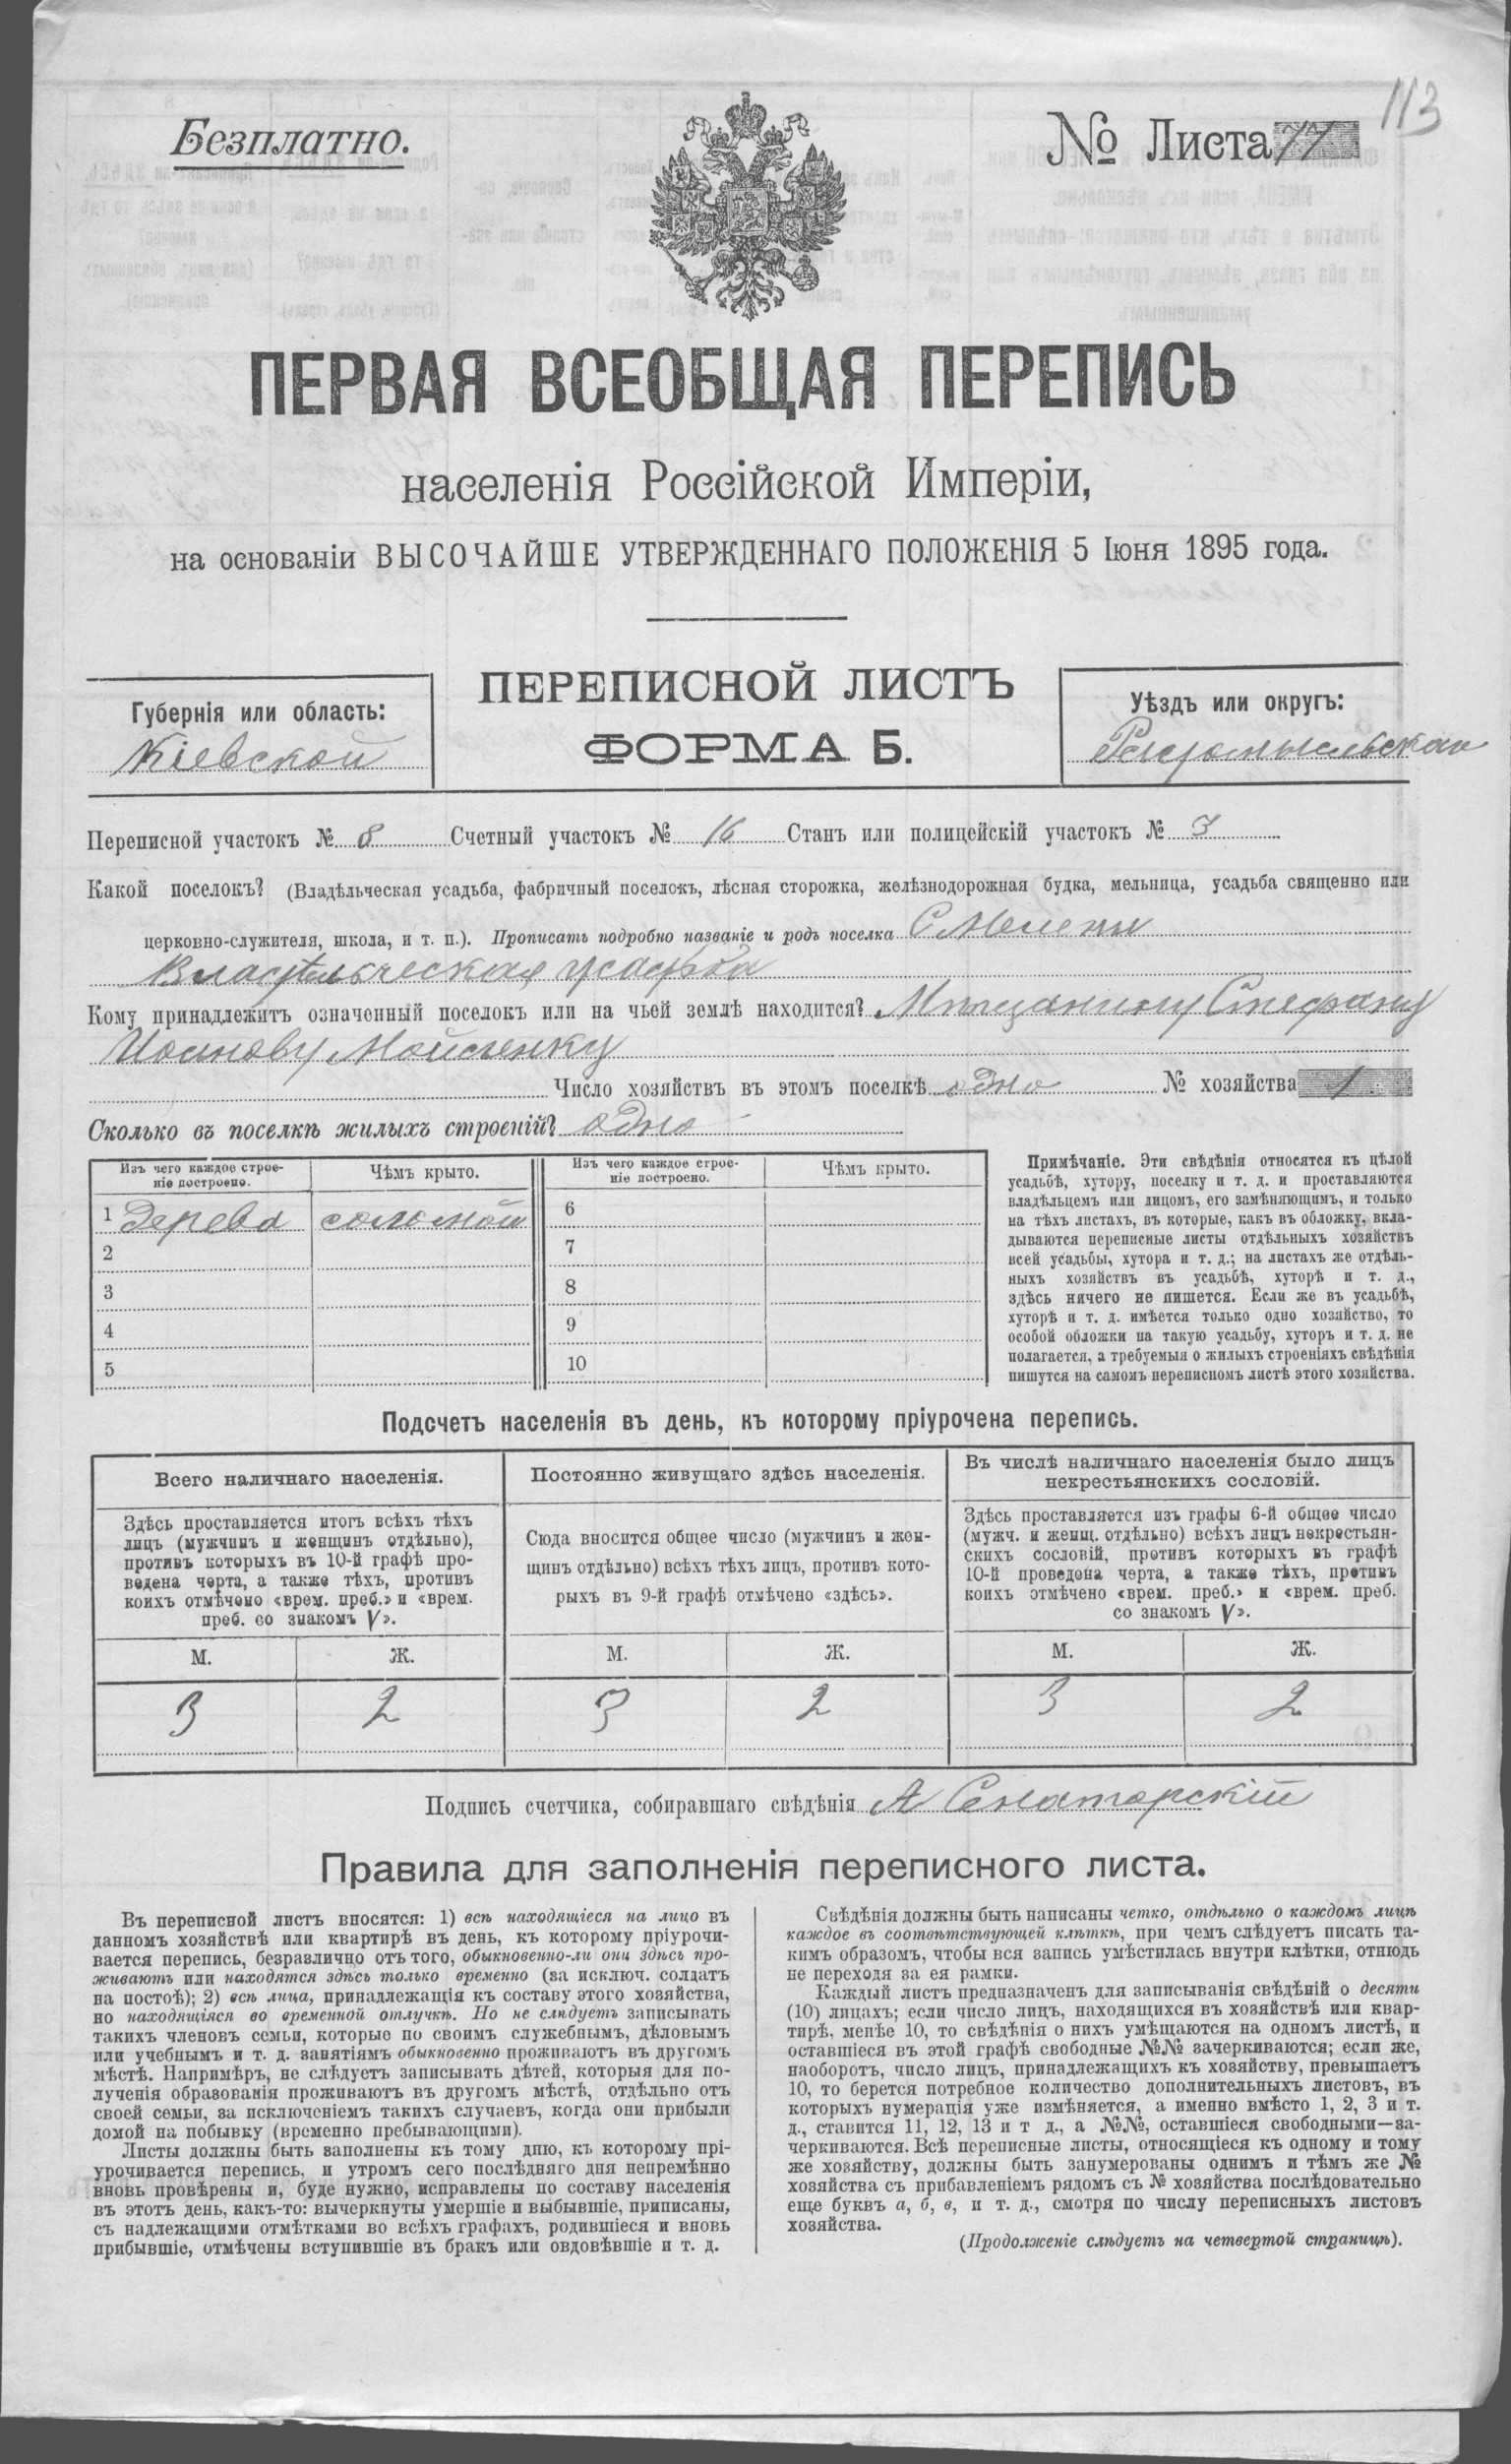 113
Безплатно.
№ Листа 77
ПЕРВАЯ ВСЕОБЩАЯ ПЕРЕПИСЬ
населенія Россійской Имперіи,
на основаніи ВЫСОЧАЙШЕ УТВЕРЖДЕННАГО ПОЛОЖЕНІЯ 5 Іюня 1895 года.
ПЕРЕПИСНОЙ ЛИСТЪ
ФОРМА Б.
Губернія или область:
Кіевской
Уѣздъ или округъ:
Переписной участокъ № 8 Счетный участокъ № 16 Станъ или полицейскій участокъ № 3
Какой поселокъ? (Владѣльческая усадьба, фабричный поселокъ, лѣсная сторожка, желѣзнодорожная будка, мельница, усадьба священно или
церковно-служителя, школа, и т. п.). Прописать подробно названіе и родъ поселка С. Мелени
Владѣльческая усадьба
Кому принадлежитъ означенный поселокъ или на чьей землѣ находится? Мѣщанину Стефану
Мойсеенку
Число хозяйствъ въ этомъ поселкѣ одно № хозяйства 1
Сколько въ поселкѣ жилыхъ строеній? одно
Изъ чего каждое строе-
ніе построено.
Чѣмъ крыто.
Изъ чего каждое строе-
ніе построено.
Чѣмъ крыто.
1 Дерева соломой
2
3
4
5
6
7
8
9
10
Примѣчаніе. Эти свѣдѣнія относятся къ цѣлой
усадьбѣ, хутору, поселку и т. д. и проставляются
владѣльцемъ или лицомъ, его замѣняющимъ, и только
на тѣхъ листахъ, въ которые, какъ въ обложку, вкла-
дываются переписные листы отдѣльныхъ хозяйствъ
всей усадьбы, хутора и т. д.; на листахъ же отдѣль-
ныхъ хозяйствъ въ усадьбѣ, хуторѣ и т. д.,
здѣсь ничего не пишется. Если же въ усадьбѣ,
хуторѣ и т. д. имѣется только одно хозяйство, то
особой обложки на такую усадьбу, хуторъ и т. д. не
полагается, а требуемыя о жилыхъ строеніяхъ свѣдѣнія
пишутся на самомъ переписномъ листѣ этого хозяйства.
Подсчетъ населенія въ день, къ которому пріурочена перепись.
Всего наличнаго населенія.
Здѣсь проставляется итогъ всѣхъ тѣхъ
лицъ (мужчинъ и женщинъ отдѣльно),
противъ которыхъ въ 10-й графѣ про-
ведена черта, а также тѣхъ, противъ
коихъ отмѣчено «врем. преб.» и «врем.
преб. со знакомъ V».
М. Ж.
3 2
Постоянно живущаго здѣсь населенія.
Сюда вносится общее число (мужчинъ и жен-
щинъ отдѣльно) всѣхъ тѣхъ лицъ, противъ кото-
рыхъ въ 9-й графѣ отмѣчено «здѣсь».
М. Ж.
3 2
Въ числѣ наличнаго населенія было лицъ
некрестьянскихъ сословій.
Здѣсь проставляется изъ графы 6-й общее число
(мужч. и женщ. отдѣльно) всѣхъ лицъ некрестьян-
скихъ сословій, противъ которыхъ въ графѣ
10-й проведена черта, а также тѣхъ, противъ
коихъ отмѣчено «врем. преб.» и «врем. преб.
со знакомъ V».
М. Ж.
3 2
Подпись счетчика, собиравшаго свѣдѣнія А Сенаторскій
Правила для заполненія переписного листа.
Въ переписной листъ вносятся: 1) всѣ находящіеся на лицо въ
данномъ хозяйствѣ или квартирѣ въ день, къ которому пріурочи-
вается перепись, безразлично отъ того, обыкновенно-ли они здѣсь про-
живаютъ или находятся здѣсь только временно (за исключ. солдатъ
на постоѣ); 2) всѣ лица, принадлежащія къ составу этого хозяйства,
но находящіяся во временной отлучкѣ. Но не слѣдуетъ записывать
такихъ членовъ семьи, которые по своимъ служебнымъ, дѣловымъ
или учебнымъ и т. д. занятіямъ обыкновенно проживаютъ въ другомъ
мѣстѣ. Напримѣръ, не слѣдуетъ записывать дѣтей, которыя для по-
лученія образованія проживаютъ въ другомъ мѣстѣ, отдѣльно отъ
своей семьи, за исключеніемъ такихъ случаевъ, когда они прибыли
домой на побывку (временно пребывающими).
Листы должны быть заполнены къ тому дню, къ которому прі-
урочивается перепись, и утромъ сего послѣдняго дня непремѣнно
вновь провѣрены и, буде нужно, исправлены по составу населенія
въ этотъ день, какъ-то: вычеркнуты умершіе и выбывшіе, приписаны,
съ надлежащими отмѣтками во всѣхъ графахъ, родившіеся и вновь
прибывшіе, отмѣчены вступившіе въ бракъ или овдовѣвшіе и т. д.
Свѣдѣнія должны быть написаны четко, отдѣльно о каждомъ лицѣ
каждое въ соотвѣтствующей клѣткѣ, при чемъ слѣдуетъ писать та-
кимъ образомъ, чтобы вся запись умѣстилась внутри клѣтки, отнюдь
не переходя за ея рамки.
Каждый листъ предназначенъ для записыванія свѣдѣній о десяти
(10) лицахъ; если число лицъ, находящихся въ хозяйствѣ или квар-
тирѣ, менѣе 10, то свѣдѣнія о нихъ умѣщаются на одномъ листѣ, и
оставшіеся въ этой графѣ свободные №№ зачеркиваются; если же,
наоборотъ, число лицъ, принадлежащихъ къ хозяйству, превышаетъ
10, то берется потребное количество дополнительныхъ листовъ, въ
которыхъ нумерація уже измѣняется, а именно вмѣсто 1, 2, 3 и т.
д., ставится 11, 12, 13 и т д., а №№, оставшіеся свободными—за-
черкиваются. Всѣ переписные листы, относящіеся къ одному и тому
же хозяйству, должны быть занумерованы однимъ и тѣмъ же №
хозяйства съ прибавленіемъ рядомъ съ № хозяйства послѣдовательно
еще буквъ а, б, в, и т. д., смотря по числу переписныхъ листовъ
хозяйства.
(Продолженіе слѣдуетъ на четвертой страницѣ).